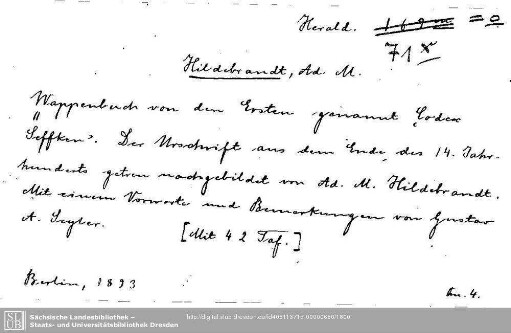 Herald. 169m = 0
71x
Hildebrandt, Ad. M.
„Wappenbuch von den Ersten genannt ‚Codex
Seffken‘. Der Urschrift aus dem Ende des 14. Jahr-
hunderts getreu nachgebildet von Ad. M. Hildebrandt.
Mit einem Vorworte und Bemerkungen von Gustav
A. Seyler. [Mit 42 Taf.]
Berlin, 1893 4.
Sächsische Landesbibliothek –
Staats- und Universitätsbibliothek Dresden